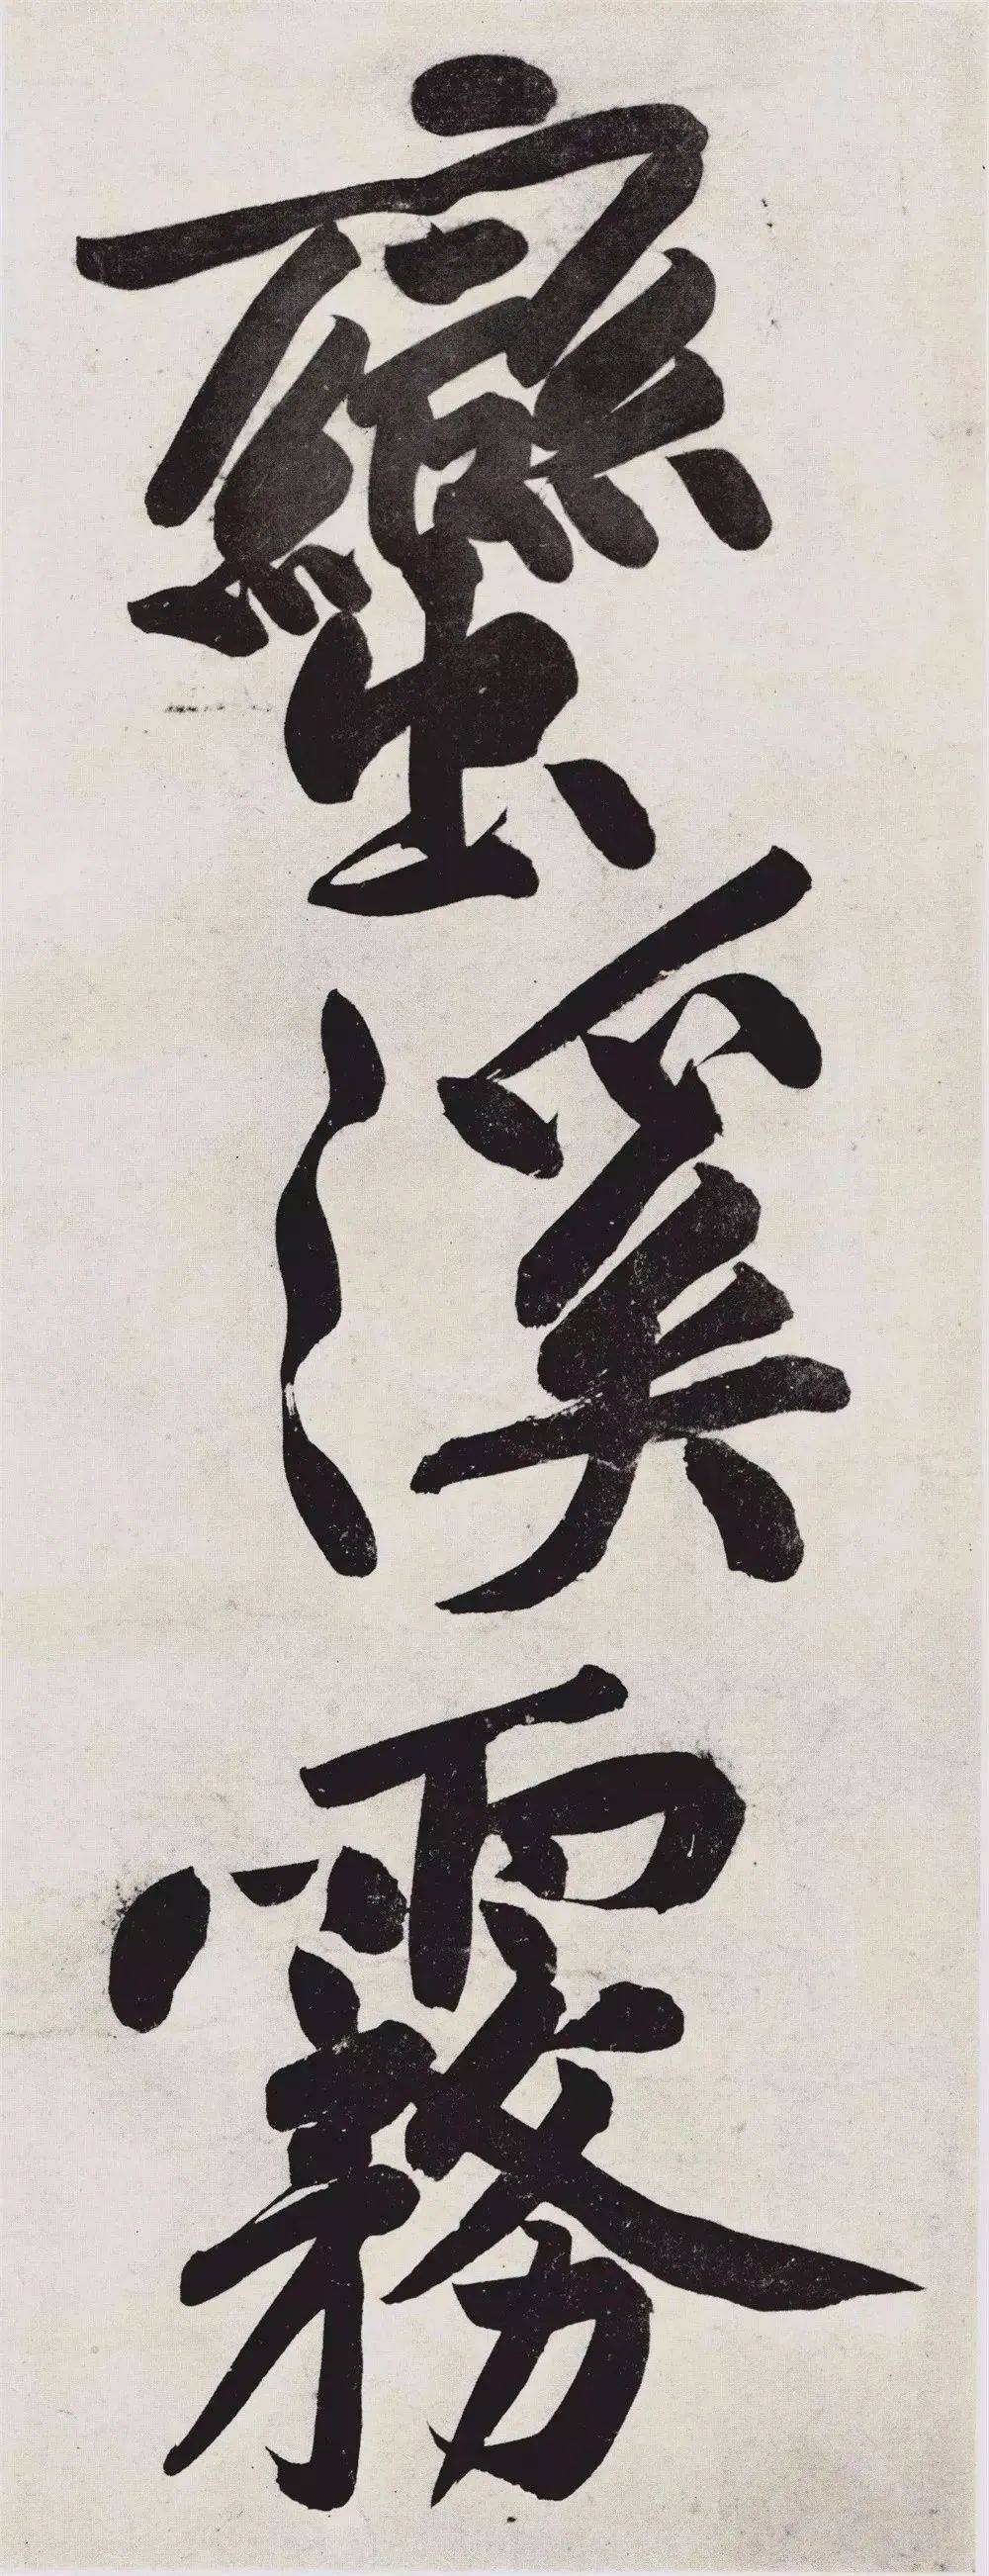 蠻溪霧